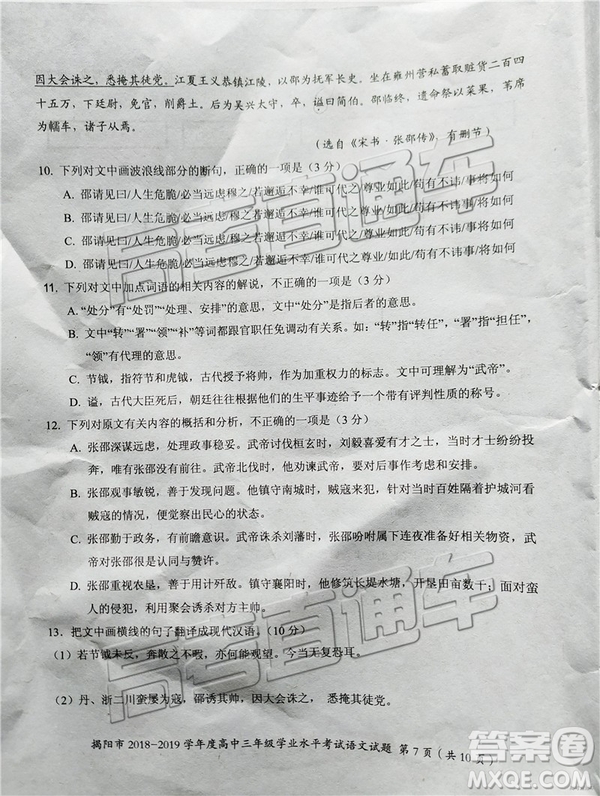 因大会诛之，悉掩其徒党。江夏王义恭镇江陵，以邵为抚军长史。坐在雍州营私蓄取赃货二百四
十五万，下廷尉，免官，削爵土。后为吴兴太守，卒，谥曰简伯。邵临终，遗命祭以菜果，苇席
为轜车，诸子从焉。
（选自《宋书·张邵传》，有删节）
10. 下列对文中画波浪线部分的断句，正确的一项是（3 分）
A. 邵请见曰/人生危脆/必当远虑穆之/若邂逅不幸/谁可代之尊业如此/苟有不讳/事将如何
B. 邵请见曰/人生危脆/必当远虑/穆之若邂逅不幸/谁可代之/尊业如此/苟有不讳/事将如何
C. 邵请见曰/人生危脆/必当远虑/穆之若邂逅不幸/谁可代之/尊业如此/苟有不讳事/将如何
D. 邵请见曰/人生危脆/必当远虑穆之/若邂逅不幸/谁可代之/尊业如此/苟有不讳事/将如何
11. 下列对文中加点词语的相关内容的解说，不正确的一项是（3 分）
A. “处分”有“处罚”与“处理、安排”的意思，文中是指后者的意思。
B. 文中“转”“署”“领”“补”等词都跟官职任免调动有关系。如：“转”指“转任”，“署”指“担任”，
“领”有代理的意思。
C. 节钺，指符节和虎钺，古代授予将帅，作为加重权力的标志。文中使用“武帝”。
D. 谥，古代大臣死后，朝廷往往根据他们的生平事迹给予一个带有评判性质的称号。
12. 下列对原文有关内容的概括和分析，不正确的一项是（3 分）
A. 张邵深谋远虑，政治嗅觉灵敏。武帝讨伐桓玄时，刘毅喜爱有才之士，当时人士纷纷投
奔，唯有他不去。武帝北伐时，他劝谏武帝要考虑身后之事并作出安排。
B. 张邵观事敏锐，善于管理。他镇守南城时，贼寇未到，观察到当时百姓隔着护城河看
贼寇的动静，便觉察出民心的状态。
C. 张邵处事自主，有前瞻意识。武帝诛杀刘藩时，张邵吩咐属下连夜准备好有关所需，武
帝对张邵很是认同与赞许。
D. 张邵重视农垦，善于御敌。镇守襄阳时，他修筑长堤水塘，开垦田亩数十；面对蛮
人的侵犯，利用聚会诱杀对方主帅。
13. 把文中画横线的句子翻译成现代汉语。（10 分）
（1）若节钺未反，奔散之不暇，亦何能复相恐耳。
（2）丹、浙二川蛮屡为寇，邵诱其帅，因大会诛之， 悉掩其徒党。
揭阳市 2018-2019 学年度高中三年级学业水平考试语文试题 第 7 页（共 10 页）
高考直通车
高考直通车
答案圈